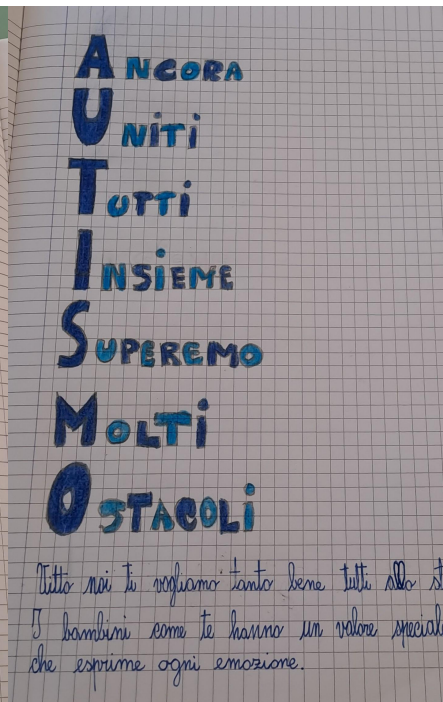 ANCORA
UNITI
TUTTI
INSIEME
SUPEREMO
MOLTI
OSTACOLI
noi ti vogliamo tanto bene tutti allo
I bambini come te hanno un valore
che esprime ogni emozione.